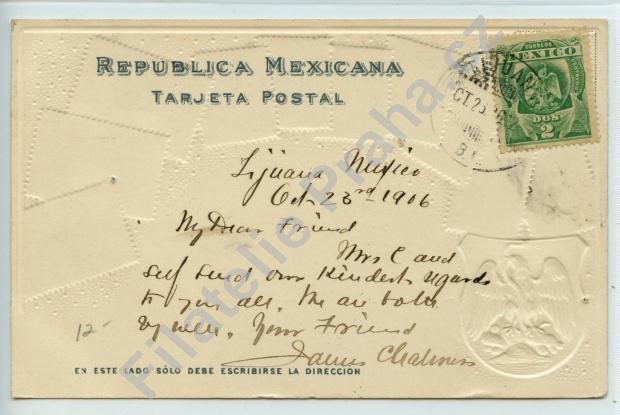 REPUBLICA MEXICANA
TARJETA POSTAL
CORREOS
MEXICO
DOS
2
Tijuana Mexico
Oct 23rd 1906
My Dear Friend
Mrs C and
self send our Kindest regards
to you all. We are both
well. Your Friend
James Chalmers
12-
EN ESTE LADO SÓLO DEBE ESCRIBIRSE LA DIRECCION
Filatelie Praha.cz